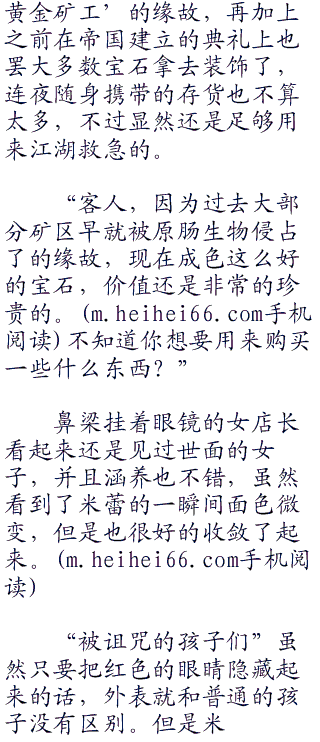 黄金矿工’的缘故，再加上
之前在帝国建立的典礼上也
罢大多数宝石拿去装饰了，
连夜随身携带的存货也不算
太多，不过显然还是足够用
来江湖救急的。
“客人，因为过去大部
分矿区早就被原肠生物侵占
了的缘故，现在成色这么好
的宝石，价值还是非常的珍
贵的。(m.heihei66.com手机
阅读)不知道你想要用来购买
一些什么东西？”
鼻梁挂着眼镜的女店长
看起来还是见过世面的女
子，并且涵养也不错，虽然
看到了米蕾的一瞬间面色微
变，但是也很好的收敛了起
来。(m.heihei66.com手机阅
读)
“被诅咒的孩子们”虽
然只要把红色的眼睛隐藏起
来的话，外表就和普通的孩
子没有区别。但是米